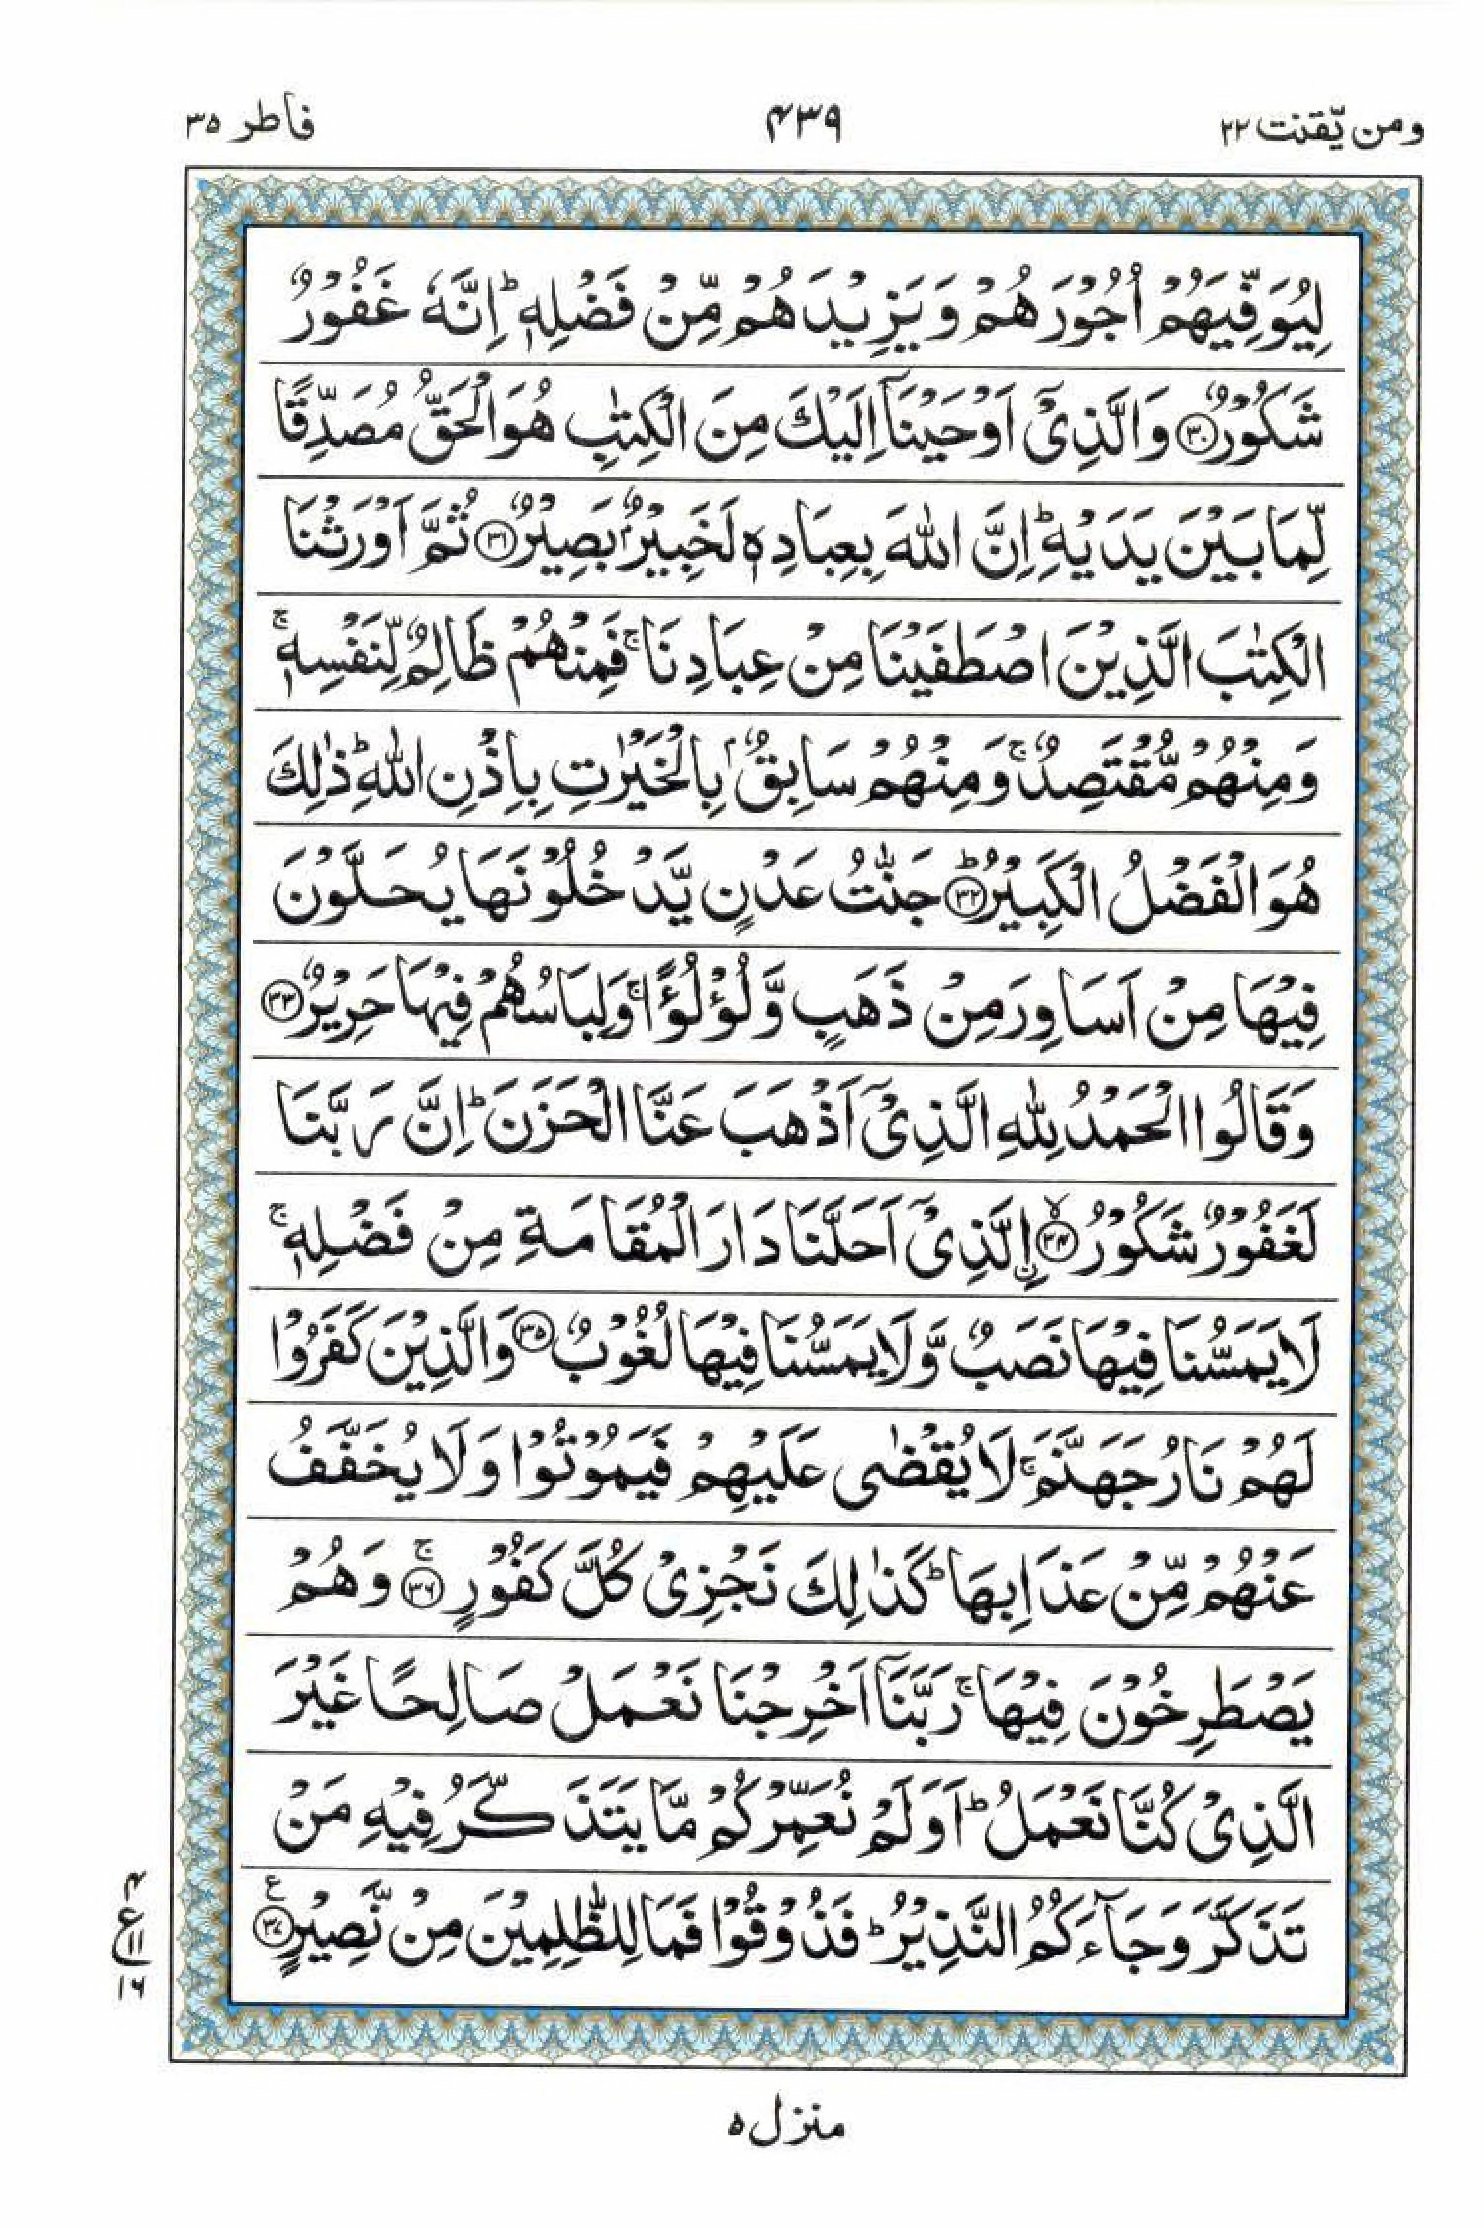 ومن یّقنت ۲۲
۴۳۹
فاطر ۳۵
لِيُوَفِّيَهُمْ اُجُوْرَهُمْ وَيَزِيْدَهُمْ مِّنْ فَضْلِهٖ ؕ اِنَّهٗ غَفُوْرٌ
شَكُوْرٌ ۝۳۰ وَالَّذِيْۤ اَوْحَيْنَاۤ اِلَيْكَ مِنَ الْكِتٰبِ هُوَ الْحَقُّ مُصَدِّقًا
لِّمَا بَيْنَ يَدَيْهِ ؕ اِنَّ اللّٰهَ بِعِبَادِهٖ لَخَبِيْرٌۢ بَصِيْرٌ ۝۳۱ ثُمَّ اَوْرَثْنَا
الْكِتٰبَ الَّذِيْنَ اصْطَفَيْنَا مِنْ عِبَادِنَا ۚ فَمِنْهُمْ ظَالِمٌ لِّنَفْسِهٖ ۚ
وَمِنْهُمْ مُّقْتَصِدٌ ۚ وَمِنْهُمْ سَابِقٌۢ بِالْخَيْرٰتِ بِاِذْنِ اللّٰهِ ؕ ذٰلِكَ
هُوَ الْفَضْلُ الْكَبِيْرُ ؕ۝۳۲ جَنّٰتُ عَدْنٍ يَّدْخُلُوْنَهَا يُحَلَّوْنَ
فِيْهَا مِنْ اَسَاوِرَ مِنْ ذَهَبٍ وَّلُؤْلُؤًا ۚ وَلِبَاسُهُمْ فِيْهَا حَرِيْرٌ ۝۳۳
وَقَالُوا الْحَمْدُ لِلّٰهِ الَّذِيْۤ اَذْهَبَ عَنَّا الْحَزَنَ ؕ اِنَّ رَبَّنَا
لَغَفُوْرٌ شَكُوْرُ ۙ۝۳۴ اِ۟لَّذِيْۤ اَحَلَّنَا دَارَ الْمُقَامَةِ مِنْ فَضْلِهٖ ۚ
لَا يَمَسُّنَا فِيْهَا نَصَبٌ وَّلَا يَمَسُّنَا فِيْهَا لُغُوْبٌ ۝۳۵ وَالَّذِيْنَ كَفَرُوْا
لَهُمْ نَارُ جَهَنَّمَ ۚ لَا يُقْضٰى عَلَيْهِمْ فَيَمُوْتُوْا وَلَا يُخَفَّفُ
عَنْهُمْ مِّنْ عَذَابِهَا ؕ كَذٰلِكَ نَجْزِيْ كُلَّ كَفُوْرٍ ۚ۝۳۶ وَهُمْ
يَصْطَرِخُوْنَ فِيْهَا ۚ رَبَّنَاۤ اَخْرِجْنَا نَعْمَلْ صَالِحًا غَيْرَ
الَّذِيْ كُنَّا نَعْمَلُ ؕ اَوَلَمْ نُعَمِّرْكُمْ مَّا يَتَذَكَّرُ فِيْهِ مَنْ
تَذَكَّرَ وَجَآءَكُمُ النَّذِيْرُ ؕ فَذُوْقُوْا فَمَا لِلظّٰلِمِيْنَ مِنْ نَّصِيْرٍ ۝۳۷ ع
۴
ع ۱۱
۱۶
منزل ۵